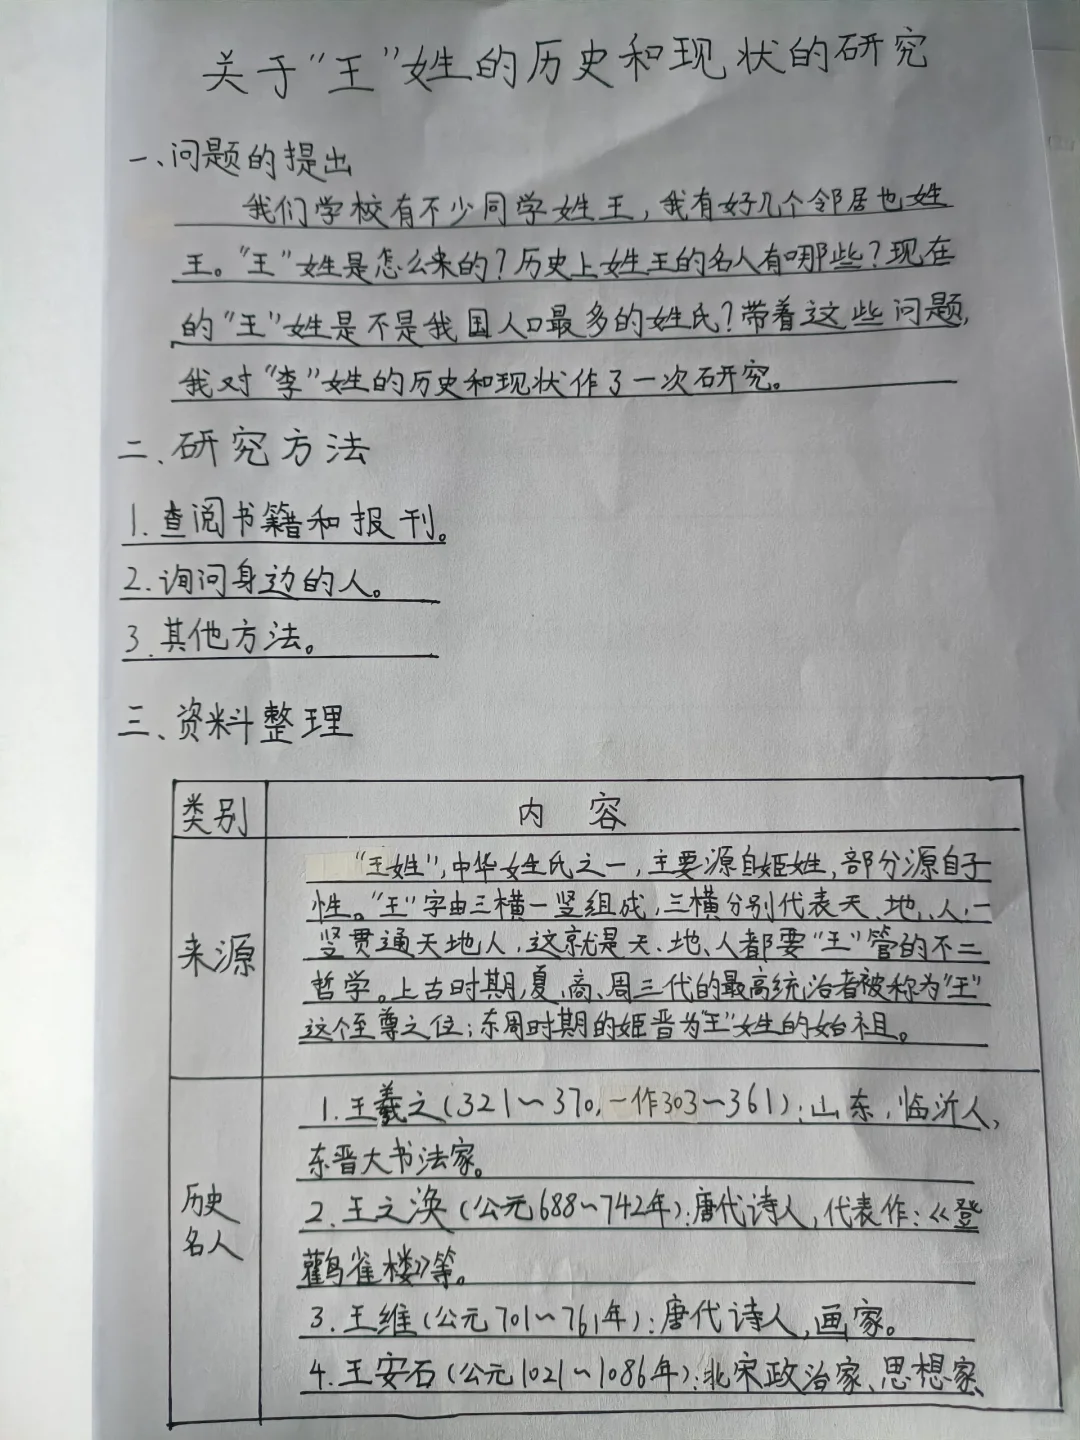 关于“王”姓的历史和现状的研究
一、问题的提出
我们学校有不少同学姓王,我有好几个邻居也姓
王。“王”姓是怎么来的?历史上姓王的名人有哪些?现在
的“王”姓是不是我国人口最多的姓氏?带着这些问题,
我对“李”姓的历史和现状作了一次研究。
二、研究方法
1.查阅书籍和报刊。
2.询问身边的人。
3.其他方法。
三、资料整理
类别 内容
来源
“王姓”,中华姓氏之一,主要源自姬姓,部分源自子
性。“王”字由三横一竖组成,三横分别代表天、地、人,一
竖贯通天地人,这就是天、地、人都要“王”管的不二
哲学。上古时期,夏、商、周三代的最高统治者被称为“王”
这个至尊之位;东周时期的姬晋为“王”姓的始祖。
历史
名人
1.王羲之(321~370,一作303~361):山东,临沂人,
东晋大书法家。
2.王之涣(公元688~742年):唐代诗人,代表作:《登
鹳雀楼》等。
3.王维(公元701~761年):唐代诗人,画家。
4.王安石(公元1021~1086年):北宋政治家、思想家、